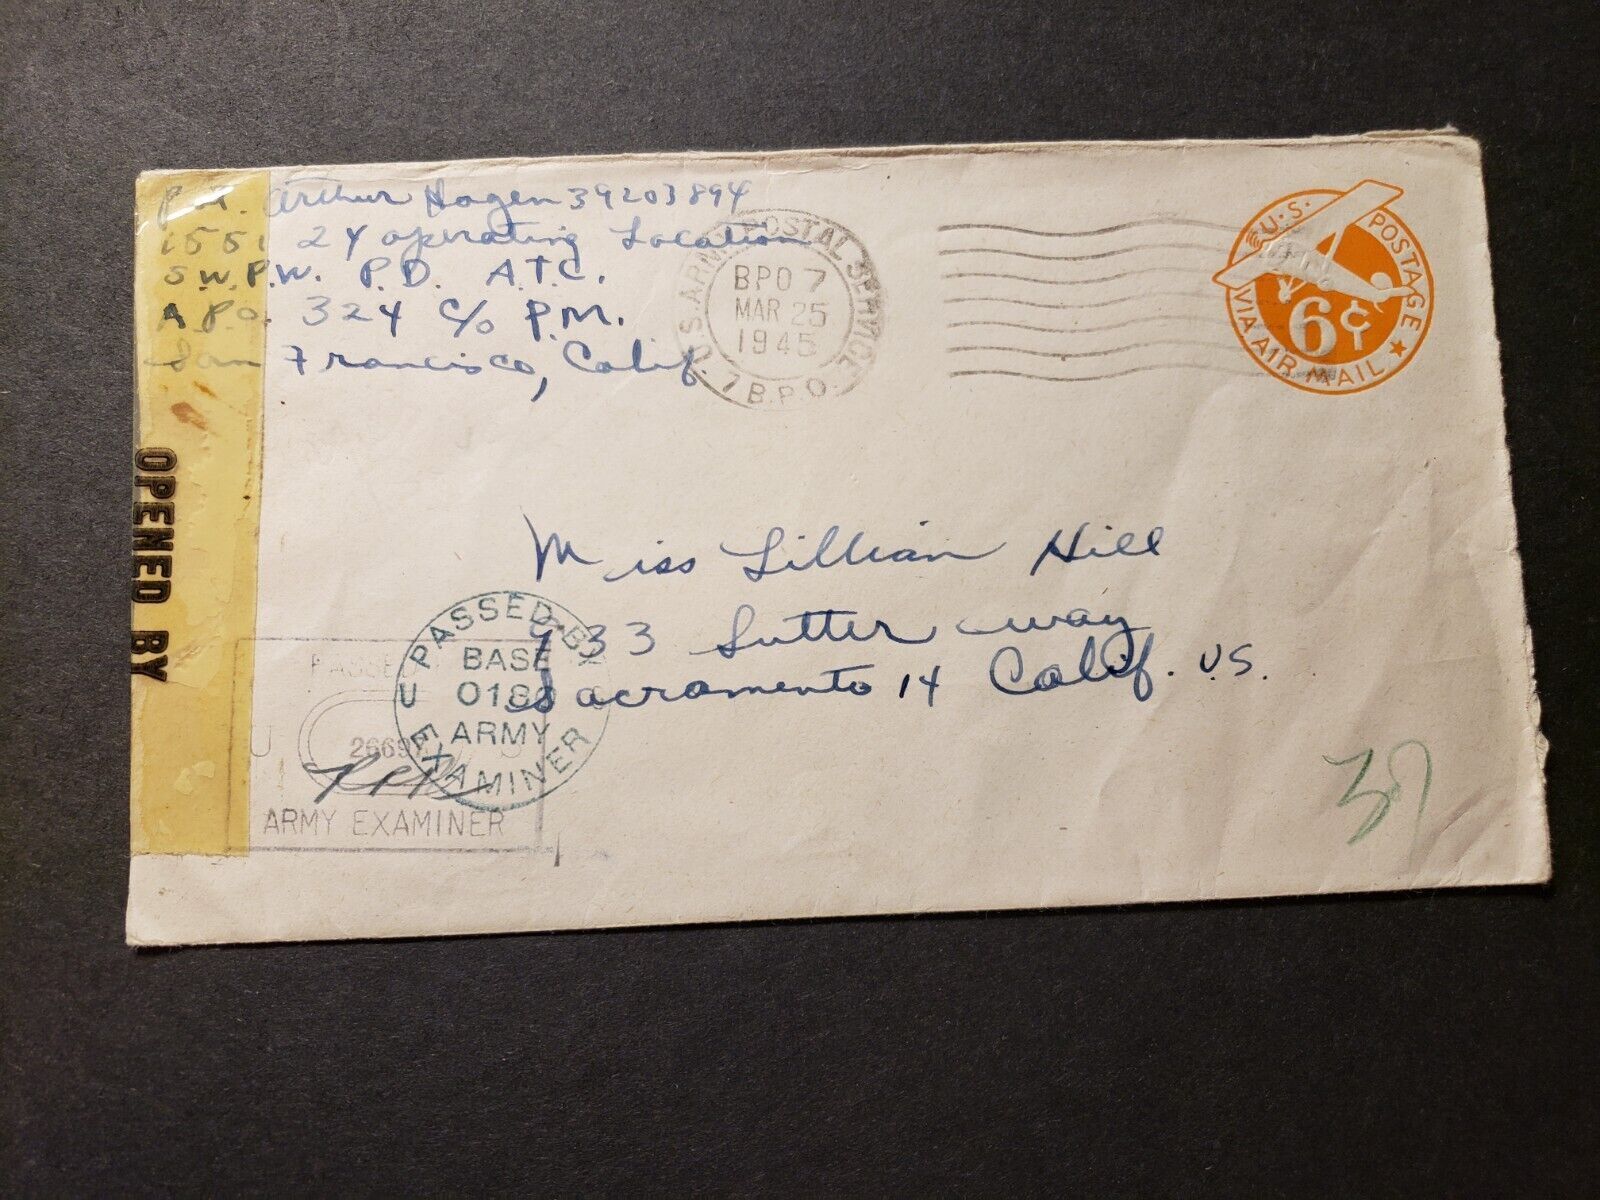 Arthur Hagen 39203894
1551 24 operating Location
S.W.P.W. P.D. A.T.C.
A.P.O. 324 c/o P.M.
San Francisco, Calif.
U.S. ARMY POSTAL SERVICE
BPO 7
MAR 25
1945
7 B.P.O.
U.S. POSTAGE
6¢
VIA AIR MAIL
OPENED BY
Miss Lillian Hill
933 Sutter way
Sacramento 14 Calif. U.S.
PASSED BY
BASE
U 0180
ARMY
EXAMINER
PASSED
U 2669 S
ARMY EXAMINER
37